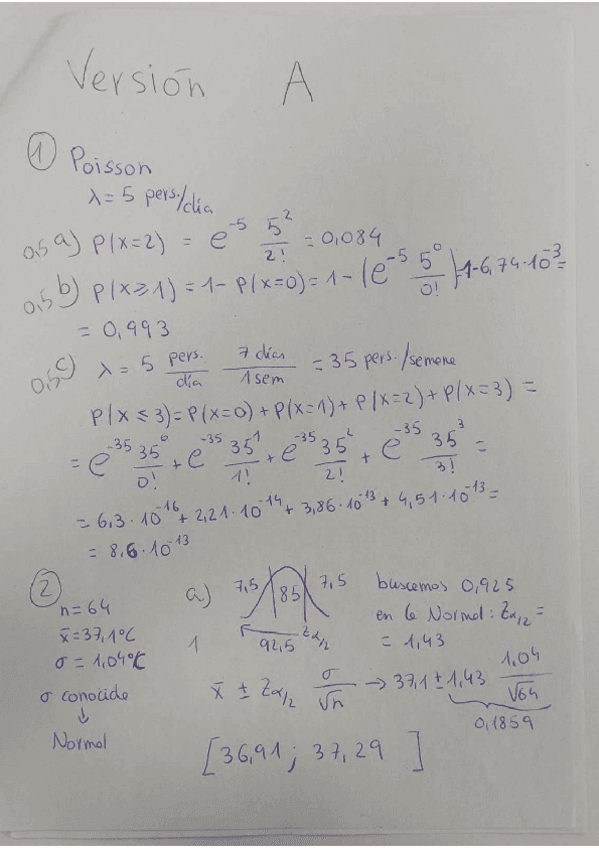 Versión A
① Poisson
λ = 5 pers./día
0,5 a) P(x=2) = e^-5 5^2/2! = 0,084
0,5 b) P(x≥1) = 1 - P(x=0) = 1 - (e^-5 5^0/0!) = 1 - 6,74·10^-3 =
= 0,993
0,5 c) λ = 5 pers./día 7 días/1 sem = 35 pers./semana
P(x≤3) = P(x=0) + P(x=1) + P(x=2) + P(x=3) =
= e^-35 35^0/0! + e^-35 35^1/1! + e^-35 35^2/2! + e^-35 35^3/3! =
= 6,3·10^-16 + 2,21·10^-14 + 3,86·10^-13 + 4,51·10^-13 =
= 8,6·10^-13
②
n = 64
x̄ = 37,1ºC
σ = 1,04ºC
σ conocida
↓
Normal
a) 7,5 85 7,5
1 92,5 Zα/2
buscamos 0,925
en la Normal: Zα/2 =
= 1,43
x̄ ± Zα/2 σ/√n → 37,1 ± 1,43 1,04/√64
0,1859
[36,91 ; 37,29]